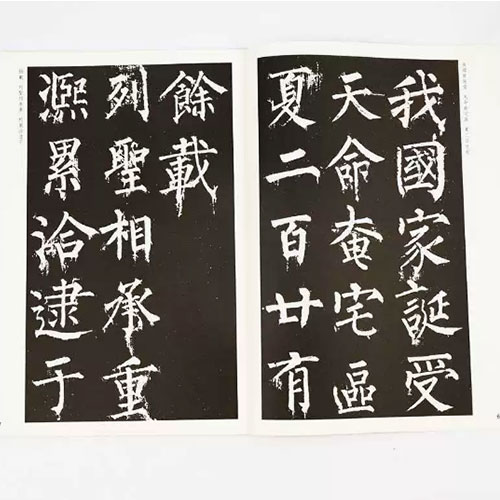 我國家誕受
天命奄宅區
夏二百廿有
餘載
列聖相承重
凞累洽逮于